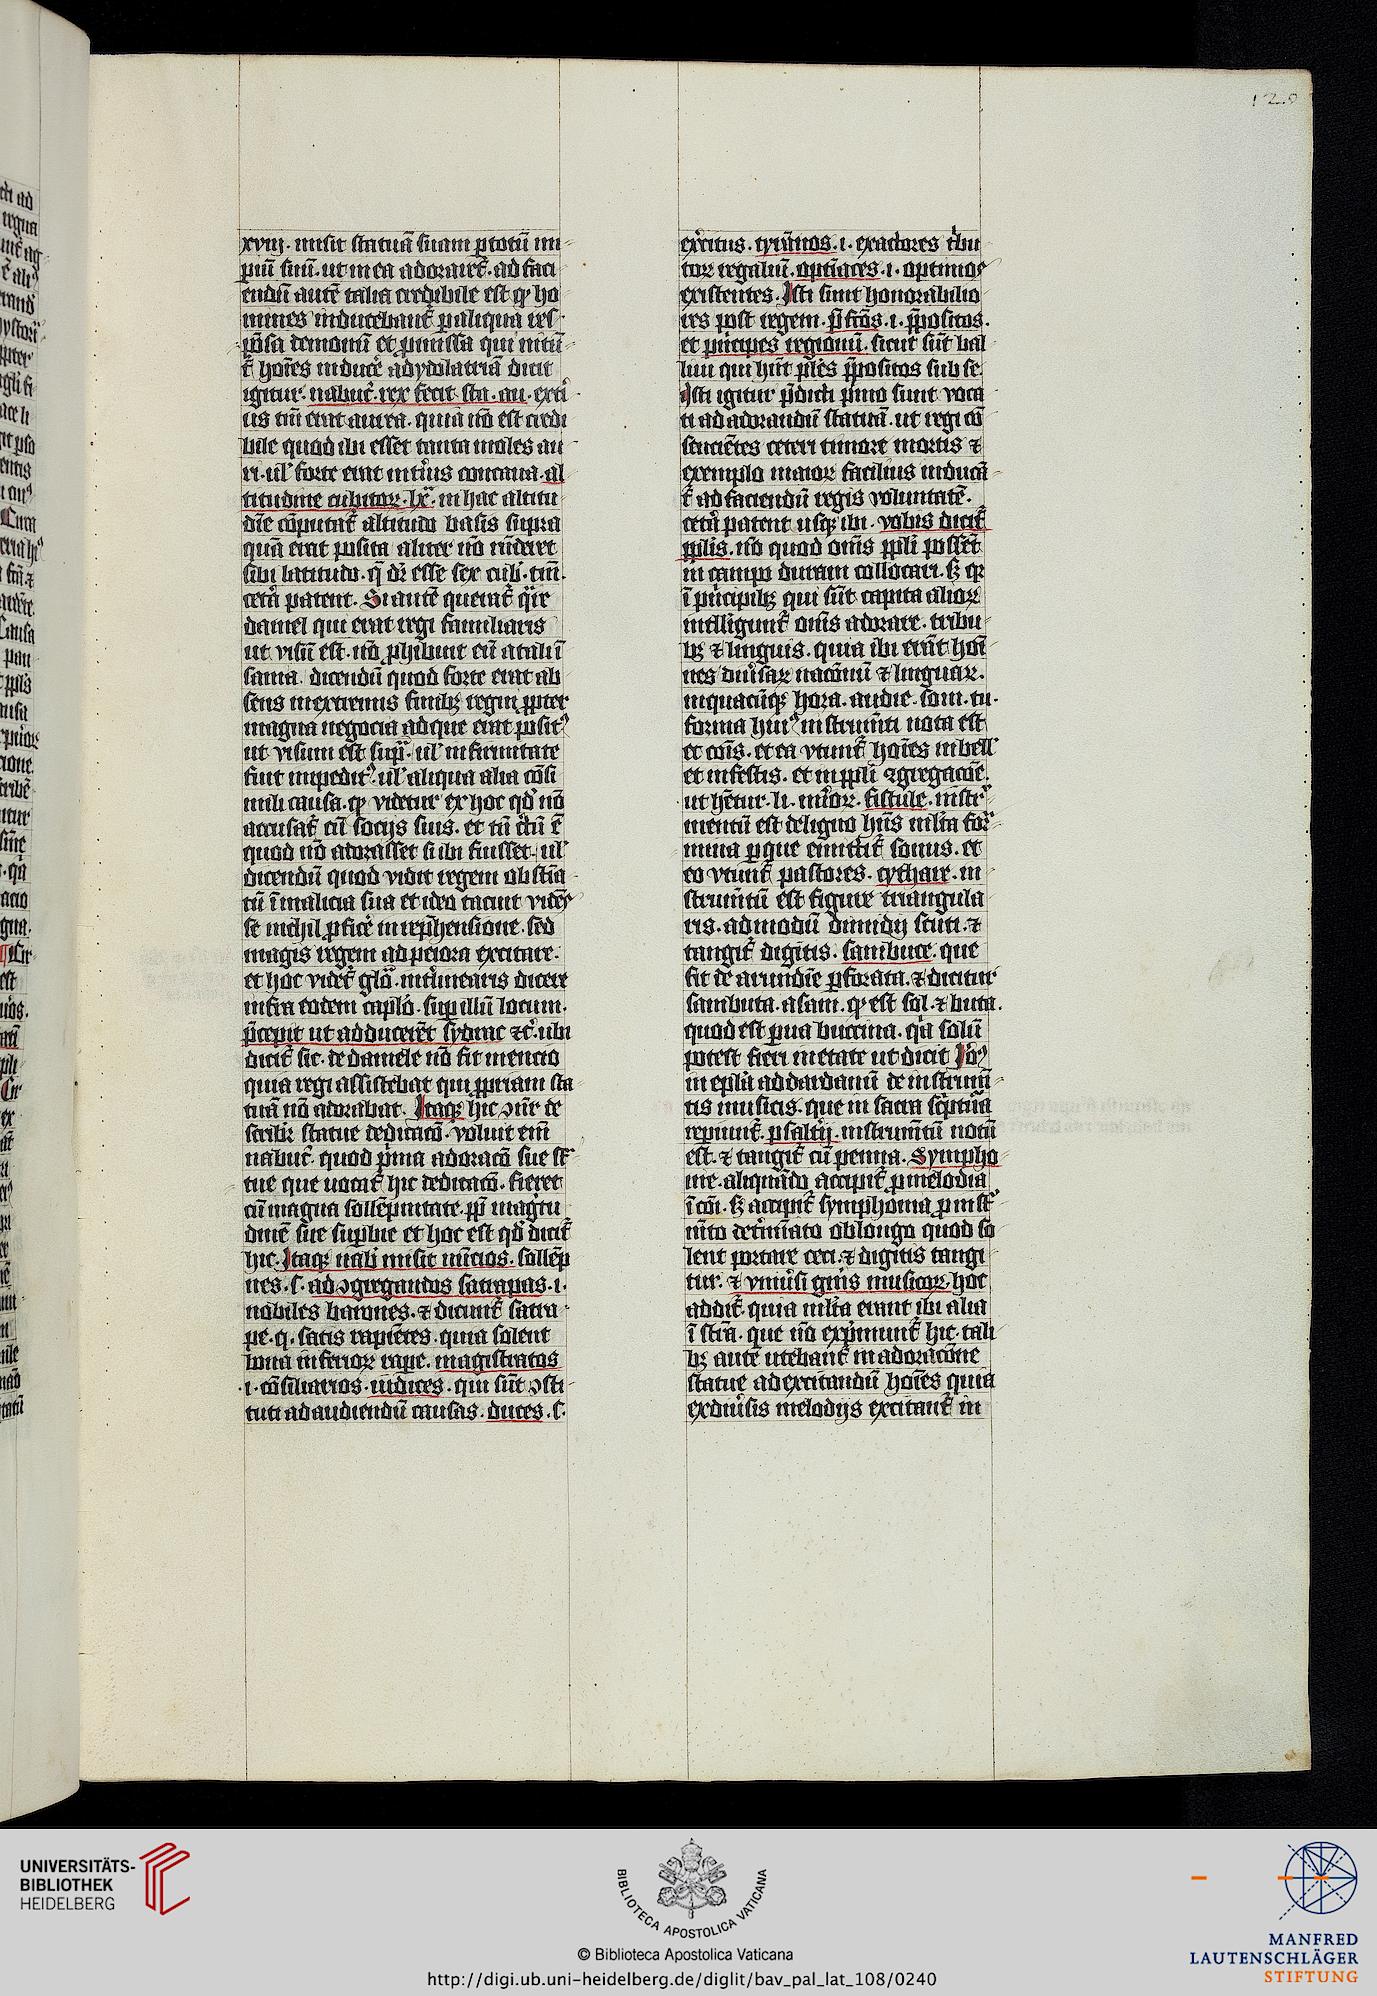 120
xviij. misit statuā suam ꝑ totū im
piū suū. ut in ea adoraret̄. ad faci
endū autē talia credibile est ꝙ ho
mines inducebant̄ ꝑ aliqua res
pōsa demonū et ꝓmissa qui nitū
t̄ hoīes inducē ad ydolatriā dicit
igitur. nabuc̄. rex fecit sta. au. exti
us tm̄ erat aurea. quia nō est credi
bile quod ibi esset tanta moles au
ri. ul' forte erat intius concaua. al
titudine cubitoꝝ. lx. in hac altitu
dīe cōputat̄ altitudo basis supra
quā erat posita aliter nō rn̄deret
sibi latitudo. q̄ dr̄ esse sex cub. tm̄.
cetā patent. Si autē querat̄ qr̄e
daniel qui erat regi familiaris
ut visū est. nō ꝓhibuit eū a tali ī
sania. dicendū quod forte erat ab
sens in extremis finibꝫ regni ꝓpter
magna negocia ad que erat posit9
ut visum est sup̄. ul' infirmitate
fuit impedit9. ul' aliqua alia cōsi
mili causa. ꝙ videtur ex hoc qd' nō
accusat̄ cū socijs suis. et tn̄ ctū ē
quod nō adorasset si ibi fuisset. ul'
dicendū quod vidit regem obstīa
tū ī malicia sua et ideo tacuit vidēs
se nichil ꝓficē in rep̄hensione. sed
magis regem ad peiora excitare.
et hoc videt̄ glo. int̄linearis dicere
infra eodem caplo. suꝑ illū locum.
p̄cepit ut adducerēt sydrac ⁊c. ubi
dicit̄ sic. de daniele nō fit mencio
quia regi assistebat qui ꝓpriam sta
tuā nō adorabat. Itaqꝫ hic ↄn̄r de
scribit̄ statue dedicacō. voluit em̄
nabuc̄. quod pīma adoracō sue st
tue que uocat̄ hic dedicacō. fieret
cū magna sollēpnitate. ꝓp̄ magītu
dinē sūe suꝑbie et hoc est qd' dicit̄
hic. Itaqꝫ nab misit nūcios. sollēp
nes. s. ad ↄgregandos satrapas. i.
nobiles barones. ⁊ dicunt̄ satra
pe. q. satis rapiētes. quia solent
bona inferioꝝ rape. magistratos
.i. cōsiliarios. iudices. qui sūt ↄsti
tuti ad audiendū causas. duces. s.
exc̄itus. tyrānos. i. exactores tbu
toꝝ regaliū. optīates. i. optimos
existentes. Isti sunt honorabilio
res post regem. p̄fcōs. i. p̄positos.
et pncipes regionū. sicut sūt bal
liui qui hn̄t pl'es p̄positos sub se
Isti igitur p̄dicti pmo sunt voca
ti ad adorandū statuā. ut regi cō
senciētes ceteri timore mortis ⁊
exemplo maioꝝ facilius inducā
t̄ ad faciendū regis voluntatē.
cetā patent usqꝫ ibi. vobis dicit̄
ppl'is. nō quod om̄s ppl'i possēt
in campo duram collocari. sꝫ qꝛ
ī pncipibꝫ qui sūt capita alioꝝ
intelligunt̄ om̄s adorare. tribu
bꝫ ⁊ linguis. quia ibi erāt homī
nes diu'saꝝ nacōnū ⁊ linguaꝝ.
in quacūqꝫ hora. audie. soni. tu.
forma hui9 instrumti nota est
et cōīs. et ea vtunt̄ hoīes in bell'
et in festis. et in ppl'i ↄgregacōe.
ut hētur. li. mīoꝝ. fistule. instr
mentū est de ligno hn̄s mlta for
mina ꝑ que emittit̄ sonus. et
eo vtunt̄ pastores. cythare. in
strumtū est figure triangula
ris. ad modū dimidij scuti. ⁊
tangit̄ digitis. sambuce. que
fit de arundīe ꝑforata. ⁊ dicitur
sambuta. a sam. ꝙ est sol. ⁊ buta.
quod est ꝑua buccina. qā solū
potest fieri in etate ut dicit Iero
in epl'a ad dardanū de instrum
tis musicis. que in sacra scptura
reꝑiunt̄. psaltij. instrumtū notū
est. ⁊ tangit̄ cū penna. Sympho
nie. aliquādo accipit̄ ꝓ melodia
ī cōī. sꝫ accipit̄ symphonia ꝓ inst
mto detmiato oblongo quod so
lent portare ceci. ⁊ digitis tangi
tur. ⁊ vniu'si gn̄is musicoꝝ. hoc
addit̄ quia mlta erant ibi alia
īstra. que nō exp̄munt̄ hic. tali
bꝫ autē utebant̄ in adoracōne
statue ad excitandū hoīes quia
ex diu'sis melodijs excitant̄ in
UNIVERSITÄTS-
BIBLIOTHEK
HEIDELBERG
BIBLIOTECA APOSTOLICA VATICANA
© Biblioteca Apostolica Vaticana
http://digi.ub.uni-heidelberg.de/diglit/bav_pal_lat_108/0240
MANFRED
LAUTENSCHLÄGER
STIFTUNG